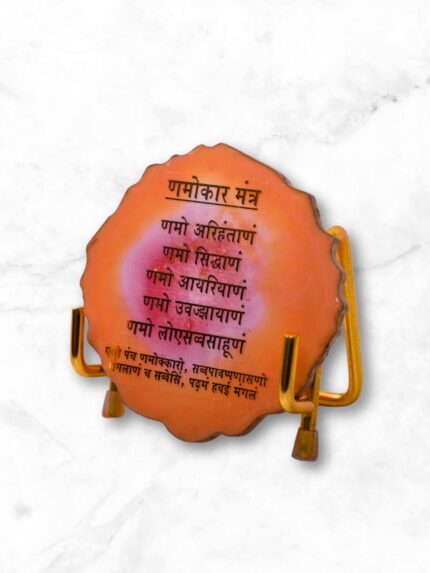 णमोकार मंत्र
णमो अरिहंताणं
णमो सिद्धाणं
णमो आयरियाणं
णमो उवज्झायाणं
णमो लोएसव्वसाहूणं
पंच णमोक्कारो, सव्वपावप्पणासणो
च सव्वेसिं, पढमं हवई मंगलं